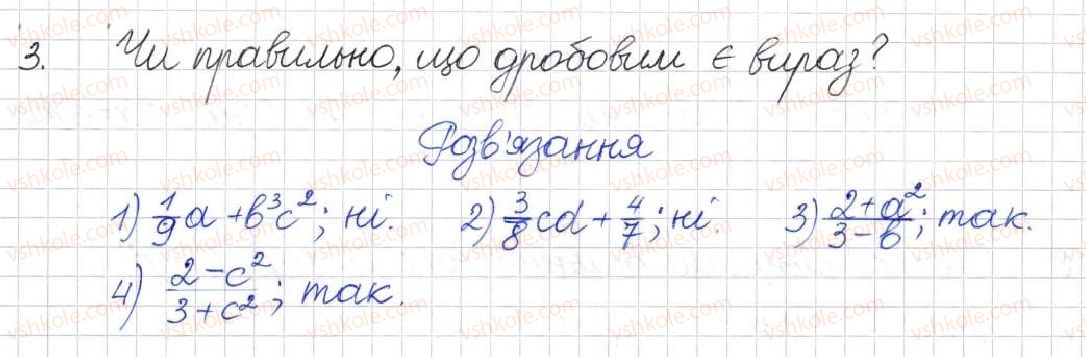 3. Чи правильно, що дробовим є вираз?
Розв'язання
1) 1/9 a + b³c²; ні. 2) 3/8 cd + 4/7; ні. 3) (2+a²)/(3-b); так.
4) (2-c²)/(3+c²); так.